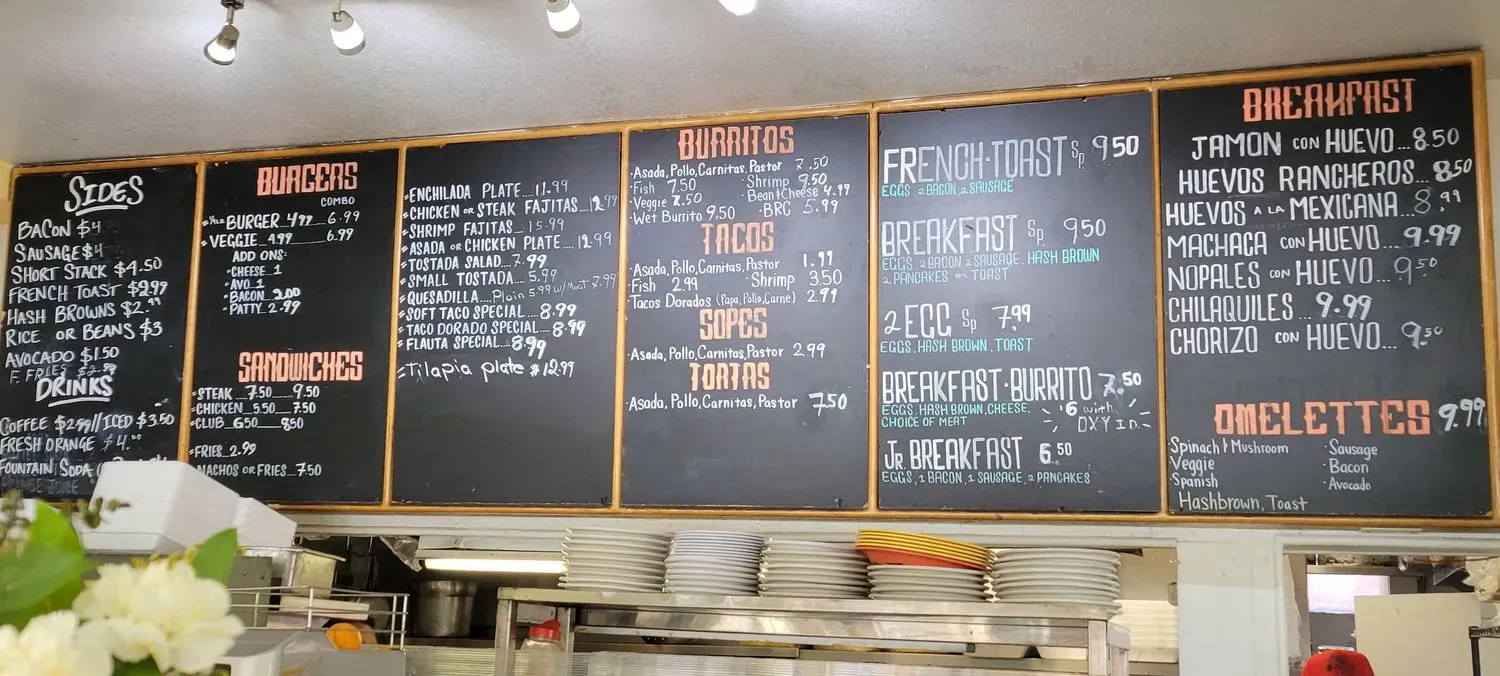 SIDES
BACON $4
SAUSAGE $4
SHORT STACK $4.50
FRENCH TOAST $2.97
HASH BROWNS $2.99
RICE OR BEANS $3
AVOCADO $1.50
F. FRIES $2.99
DRINKS
COFFEE $2.99//ICED $3.50
FRESH ORANGE $4.00
FOUNTAIN SODA
BURGERS
COMBO
BURGER 4.99 6.99
VEGGIE 4.99 6.99
ADD ONS:
CHEESE 1
AVO 1
BACON 2.00
PATTY 2.99
SANDWICHES
STEAK 7.50 9.50
CHICKEN 5.50 7.50
CLUB 6.50 8.50
FRIES 2.99
NACHOS OR FRIES...7.50
ENCHILADA PLATE....11.99
CHICKEN OR STEAK FAJITAS...12.99
SHRIMP FAJITAS 15.99
ASADA OR CHICKEN PLATE....12.99
TOSTADA SALAD...7.99
SMALL TOSTADA...5.99
QUESADILLA....Plain 5.99 w/Meat 7.99
SOFT TACO SPECIAL...8.99
TACO DORADO SPECIAL...8.99
FLAUTA SPECIAL...8.99
Tilapia plate $12.99
BURRITOS
·Asada, Pollo, Carnitas, Pastor 7.50
·Fish 7.50 ·Shrimp 9.50
·Veggie 7.50 ·Bean & Cheese 4.99
·Wet Burrito 9.50 ·BRC 5.99
TACOS
·Asada, Pollo, Carnitas, Pastor 1.99
·Fish 2.99 ·Shrimp 3.50
·Tacos Dorados (Papa, Pollo, Carne) 2.99
SOPES
·Asada, Pollo, Carnitas, Pastor 2.99
TORTAS
·Asada, Pollo, Carnitas, Pastor 7.50
FRENCH·TOAST Sp 9.50
EGGS, 2 BACON, 2 SAUSAGE
BREAKFAST Sp. 9.50
EGGS, 2 BACON 2 SAUSAGE, HASH BROWN
2 PANCAKES OR TOAST
2 EGG Sp 7.99
EGGS, HASH BROWN, TOAST
BREAKFAST·BURRITO 7.50
EGGS, HASH BROWN, CHEESE,
CHOICE OF MEAT
$6 with
OXY ID
Jr. BREAKFAST 6.50
EGGS, 1 BACON, 1 SAUSAGE, 2 PANCAKES
BREAKFAST
JAMON CON HUEVO...8.50
HUEVOS RANCHEROS...8.50
HUEVOS A LA MEXICANA...8.99
MACHACA CON HUEVO...9.99
NOPALES CON HUEVO....9.50
CHILAQUILES...9.99
CHORIZO CON HUEVO...9.50
OMELETTES 9.99
·Spinach & Mushroom ·Sausage
·Veggie ·Bacon
·Spanish ·Avocado
Hashbrown, Toast